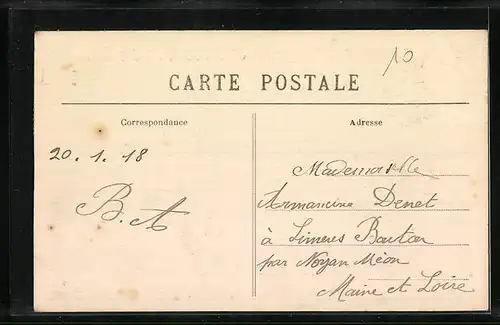 10
CARTE POSTALE
Correspondance
Adresse
20. 1. 18
B. A
Mademoiselle
Armancine Denet
à Limeres Bouton
par Noyan Méon
Maine et Loire